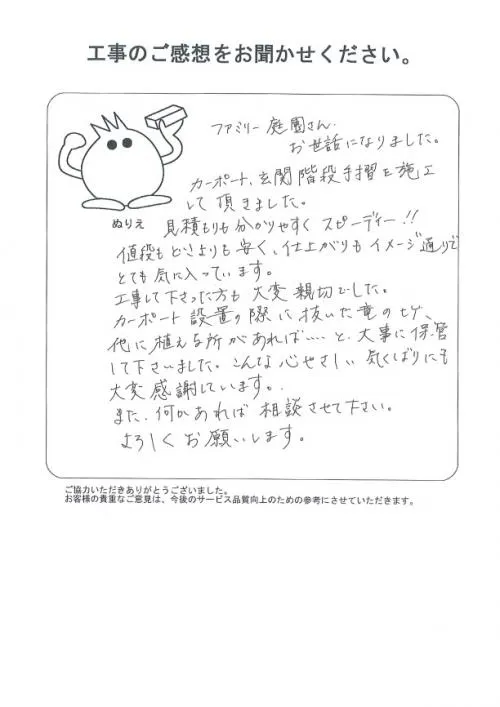 工事のご感想をお聞かせください。
ファミリー庭園さん
お世話になりました。
カーポート、玄関階段手摺を施工
して頂きました。
ぬりえ
見積もりも分かりやすくスピーディー!!
値段もどこよりも安く、仕上がりもイメージ通りで
とても気に入っています。
工事して下さった方も大変親切でした。
カーポート設置の際に抜いた竜のヒゲ、
他に植える所があれば‥‥と、大事に保管
して下さいました。こんな心やさしい気くばりにも
大変感謝しています。
また、何かあれば相談させて下さい。
よろしくお願いします。
ご協力いただきありがとうございました。
お客様の貴重なご意見は、今後のサービス品質向上のための参考にさせていただきます。